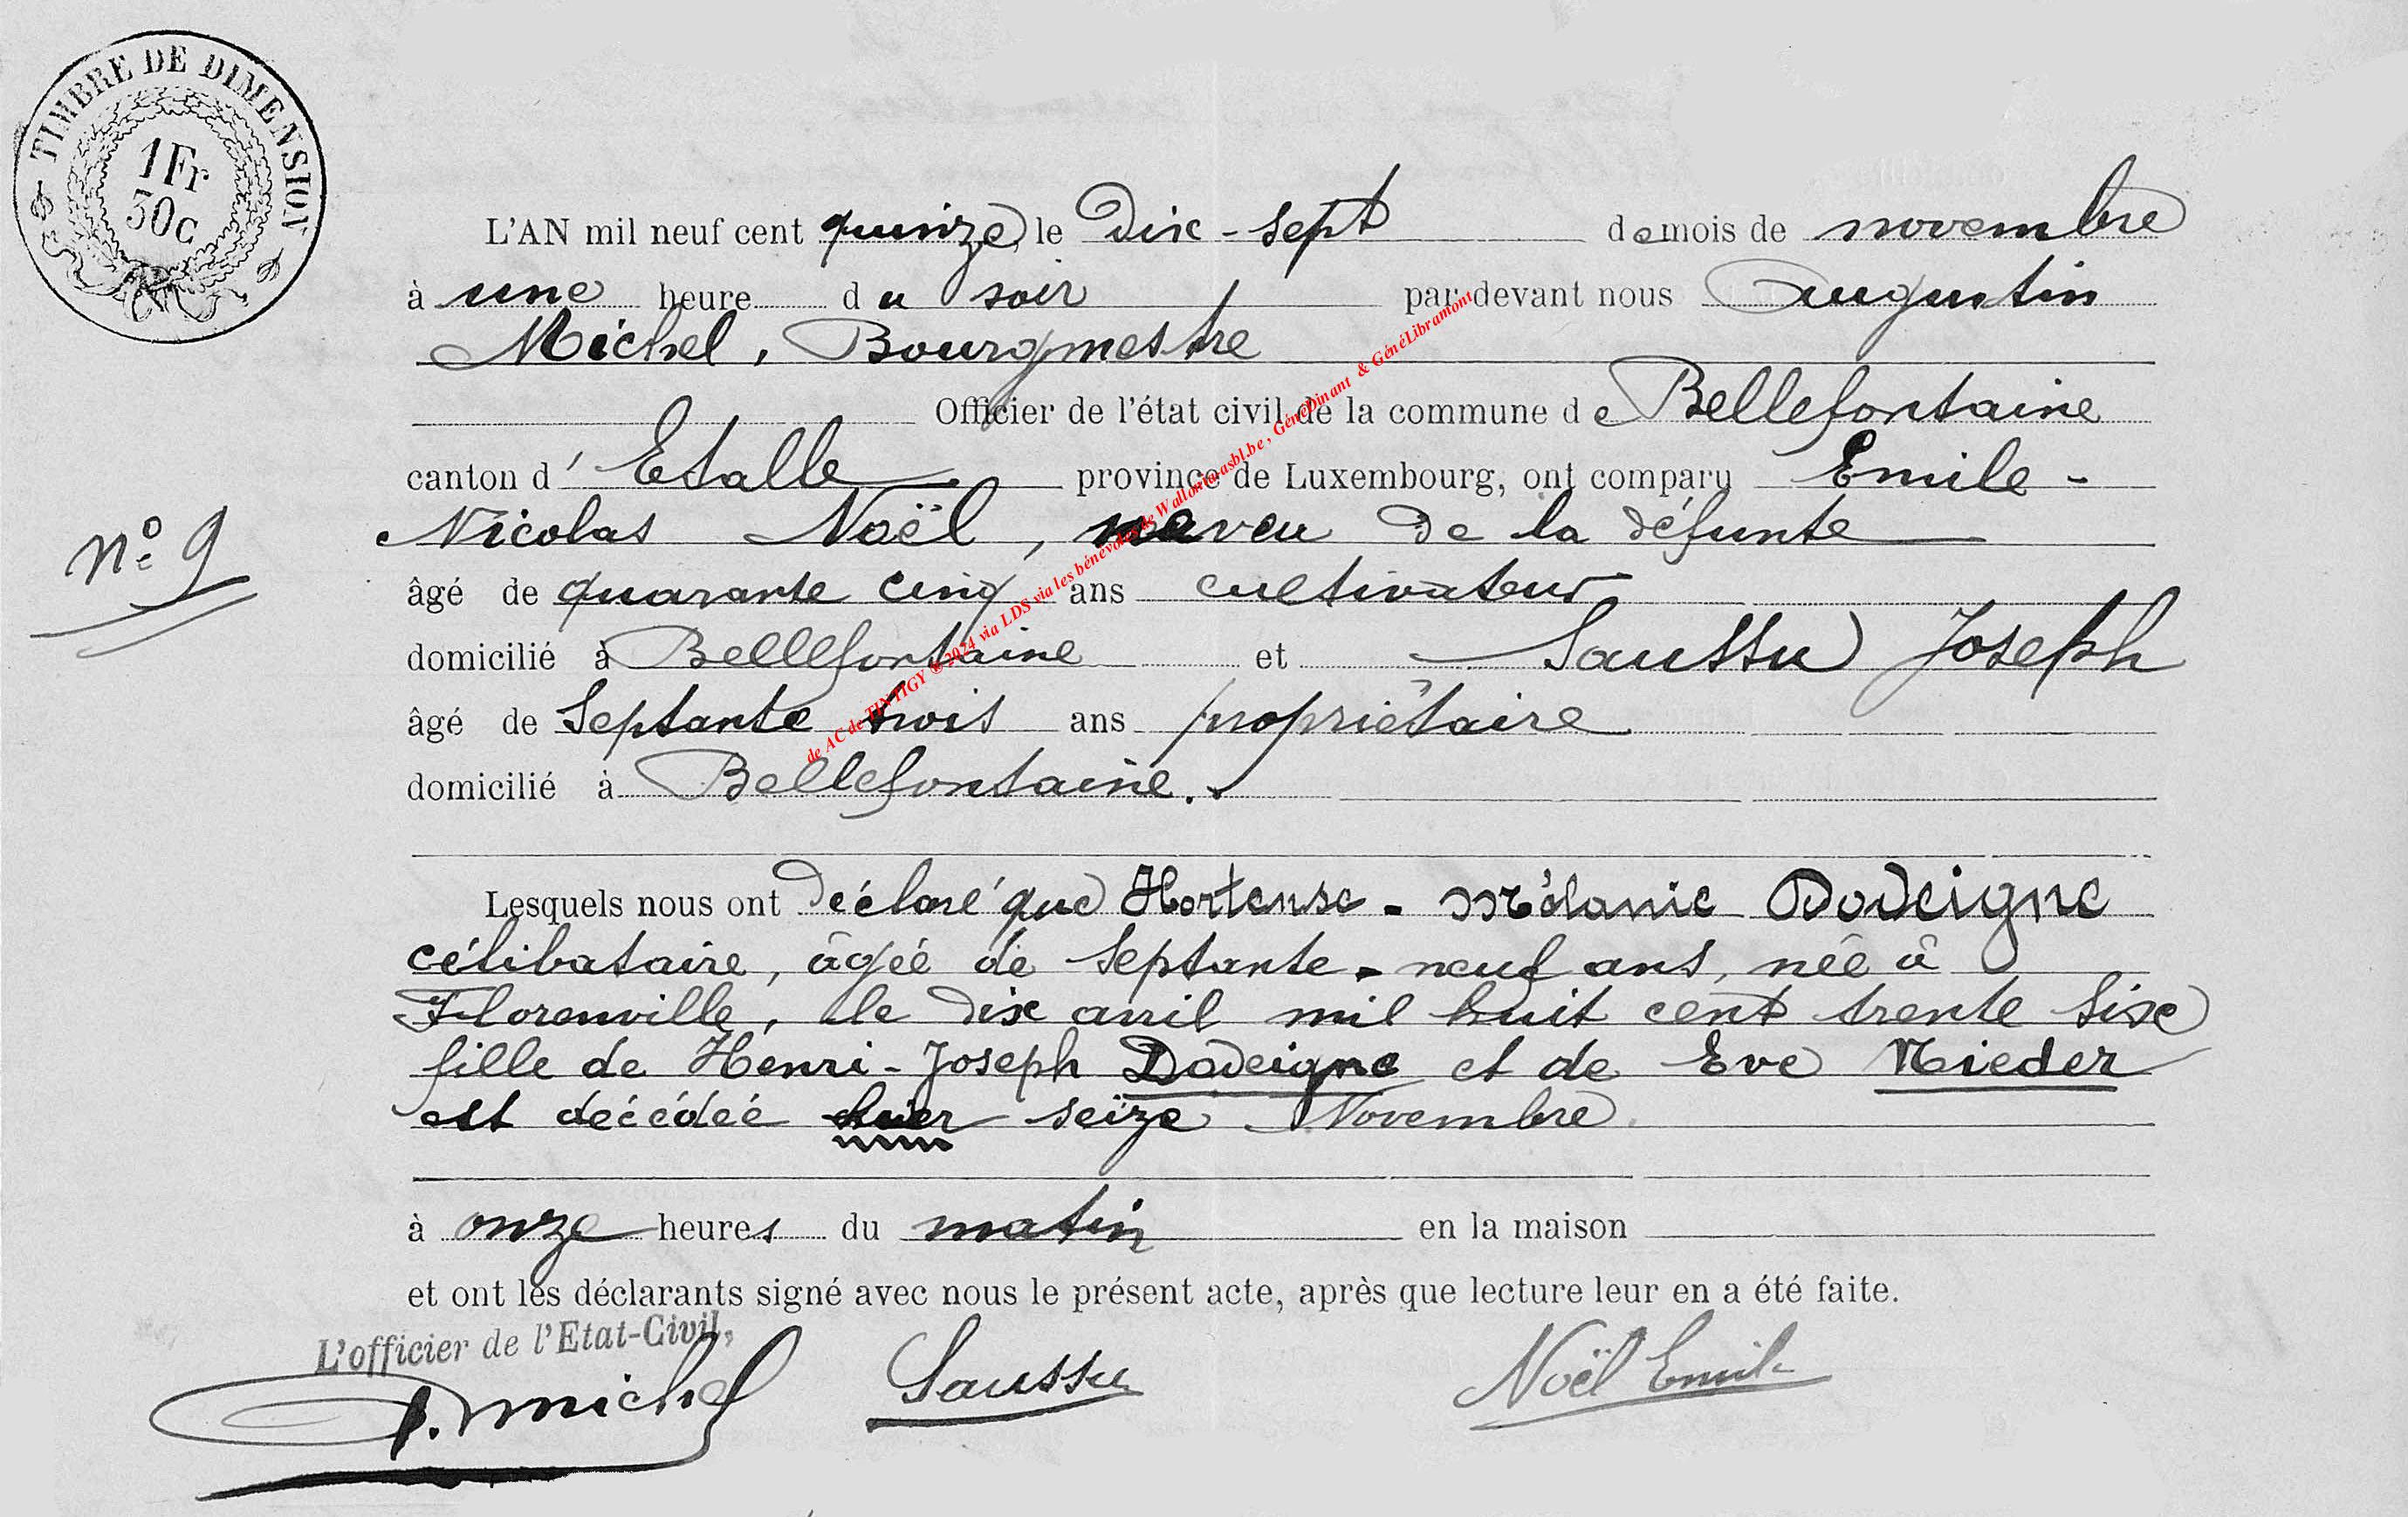 TIMBRE DE DIMENSION
1Fr
50c
L'AN mil neuf cent quinze, le Dix-sept du mois de novembre
à une heure du soir par devant nous Augustin
Michel, Bourgmestre
Officier de l'état civil de la commune de Bellefontaine
canton d' Etalle province de Luxembourg, ont comparu Emile-
Nicolas Noël, neveu de la défunte
N° 9
âgé de quarante cinq ans cultivateur
domicilié à Bellefontaine et Saussu Joseph
âgé de Septante trois ans propriétaire
domicilié à Bellefontaine.
Lesquels nous ont déclaré que Hortense-Mélanie Dodeigne
célibataire, âgée de septante-neuf ans, née à
Florenville, le dix avril mil huit cent trente six
fille de Henri-Joseph Dodeigne et de Eve Nieder
est décédée hier seize Novembre
à onze heures du matin en la maison
et ont les déclarants signé avec nous le présent acte, après que lecture leur en a été faite.
L'officier de l'Etat-Civil,
A. Michel Saussu Noël Emile
de AC de TINTIGY © 2024 via LDS via les bénévoles de Wallonia asbl.be, GénéDinant & GénéLibramont